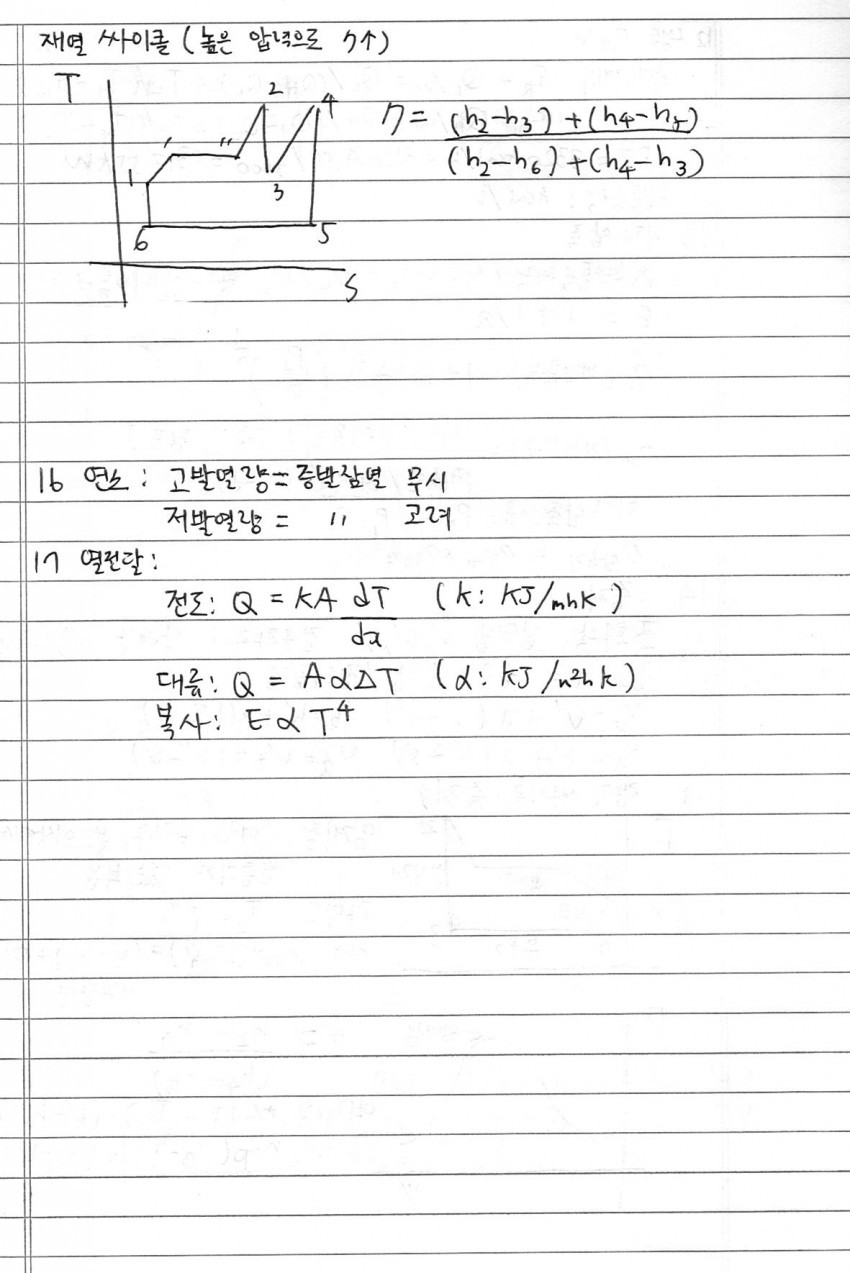 재열 싸이클 (높은 압력으로 η↑)
T
2
4
η = (h2-h3) + (h4-h5) / (h2-h6) + (h4-h3)
' "
1
3
6
5
S
16 연소 : 고발열량 = 증발잠열 무시
저발열량 = 〃 고려
17 열전달 :
전도: Q = KA dT/dx (k: KJ/mhk)
대류: Q = Aα△T (α: KJ/m²hk)
복사: E∝T⁴